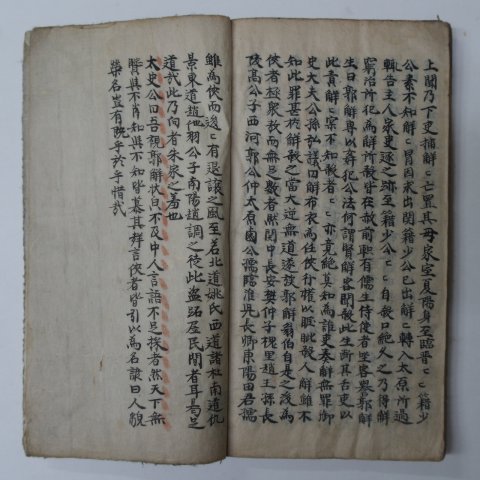 上聞乃下吏捕解ㄷ亡置其母家室夏陽身至臨晋ㄷㄷ籍少
公素不知解ㄷ冒因求出関籍少公已出解ㄷ轉入太原所過
輙告主人家吏逐之跡至籍少公ㄷㄷ自殺口絶久之乃得解
窮治所犯為解所殺皆在赦前軹有儒生侍使者坐客譽郭解
生曰郭解專以姦犯公法何謂賢解客聞殺此生断其舌吏以
此責解ㄷ宲不知殺者ㄷㄷ亦竟絶莫知為誰吏奏解無罪御
史大夫公孫弘議曰解布衣為任俠行權以睚眦殺人解雖不
知此罪甚於解殺之當大逆無道遂族郭解翁伯自是之後為
俠者極衆敖而無足数者然関中長安樊仲子槐里趙王孫長
陵高公子西河郭公仲太原鹵公孺臨淮児長卿東陽田君孺
雖為俠而逡ㄷ有退讓之風至若北道姚氏西道諸杜南道仇
景東道趙他羽公子南陽趙調之徒此盗跖居民間者耳曷足
道哉此乃向者朱家之羞也
太史公曰吾視郭解狀皃不及中人言語不足採者然天下無
賢與不肖知與不知皆慕其聲言俠者皆引以為名諺曰人貌
榮名豈有既乎於乎惜哉